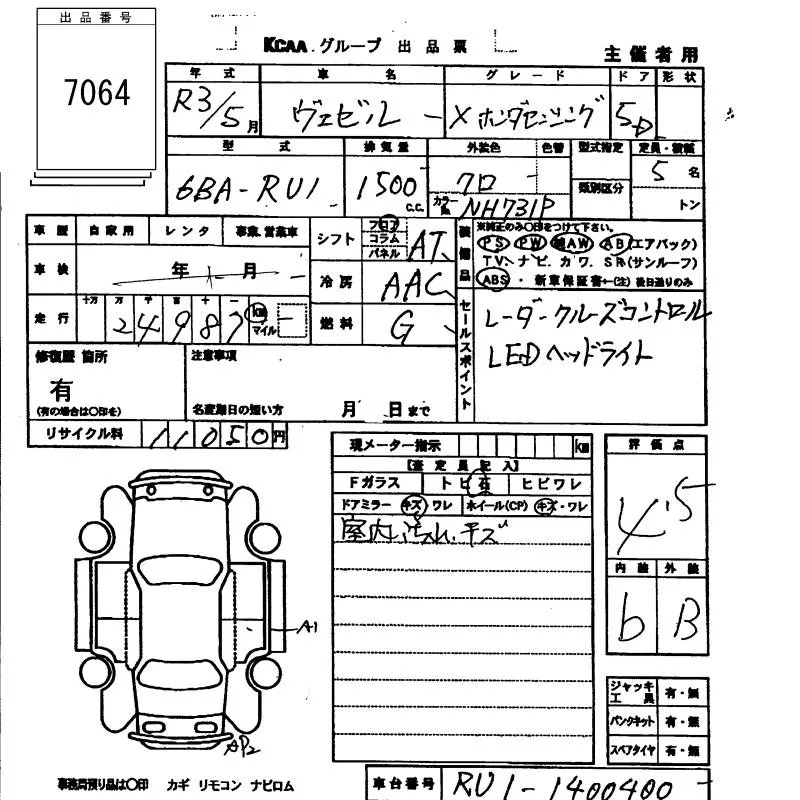 出品番号
7064
KCAA.グループ 出品票
主催者用
年式 車名 グレード ドア 形状
R3/5月 ヴェゼル - X ホンダセンシング 5D
型式 排気量 外装色 色替 型式指定 定員・積載
6BA-RU1 1500c.c. クロ 類別区分 5名
カラーNo. NH731P トン
車歴 自家用 レンタ 事業.営業車
シフト フロア コラム パネル AT
装備品 ※純正のみ〇印をつけて下さい。
PS PW 純AW AB(エアバック)
TV、ナビ.カワ.SR(サンルーフ)
ABS・新車保証書←(注)後日送りのみ
車検 年 月
冷房 AAC
走行 十万 万 千 百 十 一
24987 km マイル
燃料 G
セールスポイント
レーダークルーズコントロール
LEDヘッドライト
修復歴 箇所
有
(有の場合は〇印を)
注意事項
名変期日の短い方 月 日まで
リサイクル料 11050円
現メーター指示 km
【査定員記入】
Fガラス トビ石 ヒビワレ
ドアミラー キズ・ワレ ホイール(CP) キズ・ワレ
室内汚れ.キズ
評価点
4.5
内装 外装
b B
A1
AP2
ジャッキ工具 有・無
パンクキット 有・無
スペアタイヤ 有・無
事務局預り品は〇印 カギ リモコン ナビロム
車台番号 RU1-1400400